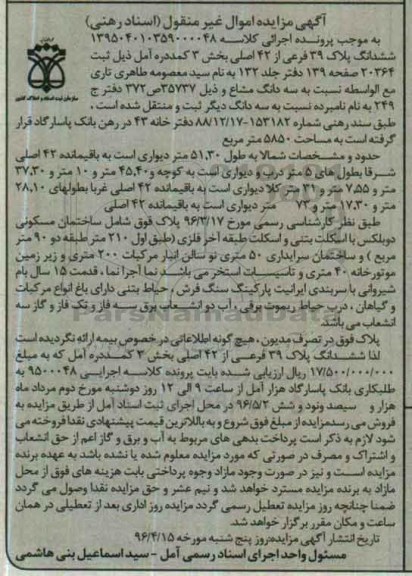 آگهی مزایده اموال غیر منقول (اسناد رهنی)
به موجب پرونده اجرائی کلاسه ۱۳۹۵۰۴۰۱۰۳۵۹۰۰۰۰۴۸
ششدانگ پلاک ۳۹ فرعی از ۴۲ اصلی بخش ۳ کمدره آمل ذیل ثبت
۲۰۳۶۴ صفحه ۱۳۹ دفتر جلد ۱۳۲ به نام سید معصومه طاهری تاری
مع الواسطه نسبت به سه دانگ مشاع و ذیل ۳۵۷۳۷ ص ۳۷۲ دفتر ج
۲۴۹ به نام نامبرده نسبت به سه دانگ دیگر ثبت و منتقل شده است.
طبق سند رهنی شماره ۱۵۳۱۸۲-۸۸/۱۲/۱۷ دفتر خانه ۴۳ در رهن بانک پاسارگاد قرار
گرفته است به مساحت ۵۸۵۰ متر مربع
حدود و مشخصات شمالا به طول ۵۱,۳۰ متر دیواری است به باقیمانده ۴۲ اصلی
شرقا بطول های ۵ متر درب و دیواری است به کوچه و ۴۵,۴۰ متر و ۱۰ متر و ۳۷,۳۰
متر و ۷,۵۵ متر و ۳۱ متر کلا دیواری است به باقیمانده ۴۲ اصلی غربا بطولهای ۲۸,۱۰
متر و ۱۷,۳۰ متر و ۷۳ متر دیواری است به باقیمانده ۴۲ اصلی
طبق نظر کارشناسی رسمی مورخ ۹۶/۳/۱۷ پلاک فوق شامل ساختمان مسکونی
دوبلکس با اسکلت بتنی و اسکلت طبقه آخر فلزی (طبق اول ۲۱۰ متر طبقه دو ۹۰ متر
مربع) و ساختمان سرایداری ۵۰ متری نو سالن انبار مرکبات ۲۰۰ متری و زیر زمین
موتورخانه ۴۰ متری و تاسیسات استخر می باشد نما آجرنما، قدمت ۱۵ سال بام
شیروانی با سربندی ایرانیت پارکینگ سنگ فرش، حیاط بتنی دارای باغ انواع مرکبات
و گیاهان، درب حیاط ریموت برقی، آب دو انشعاب برق سه فاز و تک فاز و گاز سه
انشعاب می باشد.
پلاک فوق در تصرف مدیون، هیچ گونه اطلاعاتی در خصوص بیمه ارائه نگردیده است
لذا ششدانگ پلاک ۳۹ فرعی از ۴۲ اصلی بخش ۳ کمدره آمل که به مبلغ
۱۷/۵۰۰/۰۰۰/۰۰۰ ریال ارزیابی شده بابت پرونده کلاسه اجرایی ۹۵۰۰۰۴۸ به
طلبکاری بانک پاسارگاد هزار آمل از ساعت ۹ الی ۱۲ روز دوشنبه مورخ دوم مرداد ماه
هزار و سیصد و نود و شش ۹۶/۵/۲ در محل اجرای ثبت اسناد آمل از طریق مزایده به
فروش می رسد مزایده از مبلغ فوق شروع و به بالاترین قیمت پیشنهادی نقدا فروخته می
شود لازم به ذکر است پرداخت بدهی های مربوط به آب و برق و گاز اعم از حق انشعاب
و اشتراک و مصرف در صورتی که مورد مزایده معلوم شده یا نشده باشد به عهده برنده
مزایده است و نیز در صورت وجود مازاد وجوه پرداختی بابت هزینه های فوق از محل
مازاد به برنده مزایده مسترد خواهد شد و نیم عشر و حق مزایده نقدا وصول می گردد
ضمنا چنانچه روز مزایده تعطیل رسمی گردد مزایده روز اداری بعد از تعطیلی در همان
ساعت و مکان مقرر برگزار خواهد شد.
تاریخ انتشار آگهی مزایده: روز پنج شنبه مورخه ۹۶/۴/۱۵
مسئول واحد اجرای اسناد رسمی آمل - سید اسماعیل بنی هاشمی
سازمان ثبت اسناد و املاک کشور